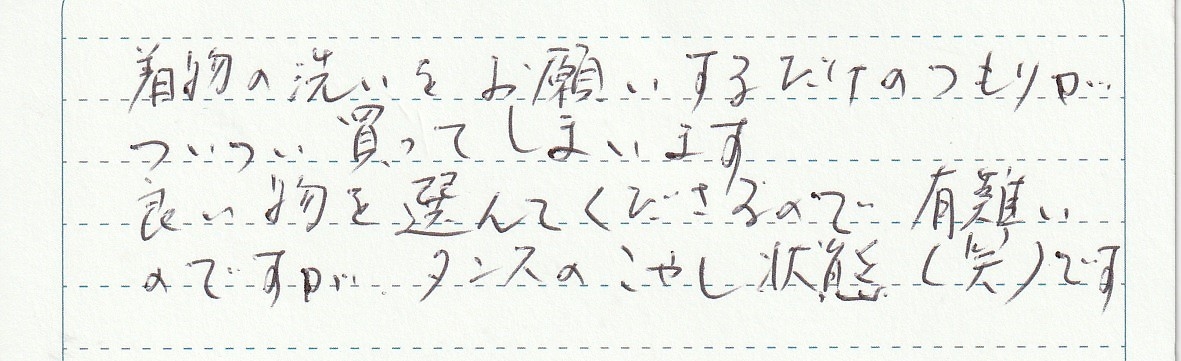 着物の洗いをお願いするだけのつもりが…
ついつい買ってしまいます
良い物を選んでくださるので有難い
のですが…タンスのこやし状態(笑)です